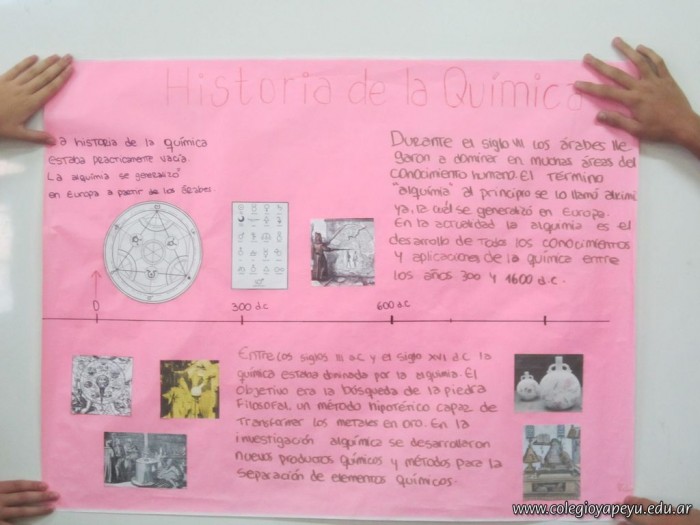 Historia de la Química
La historia de la química
estaba practicamente vacía.
La alquimia se generalizó
en Europa a partir de los Árabes.
Durante el siglo VII los árabes lle-
garon a dominar en muchas áreas del
conocimiento humano. El término
"alquimia" al principio se lo llamó alkimi
ya, la cuál se generalizó en Europa.
En la actualidad la alquimia es el
desarrollo de todos los conocimientos
y aplicaciones de la química entre
los años 300 y 1600 d.C.
0
300 d.C
600 d.C
Entre los siglos III a.C y el siglo XVI d.C la
química estaba dominada por la alquimia. El
objetivo era la búsqueda de la piedra
Filosofal, un método hipotético capaz de
transformar los metales en oro. En la
investigación alquímica se desarrollaron
nuevos productos químicos y métodos para la
separación de elementos químicos.
www.colegioyapeyu.edu.ar